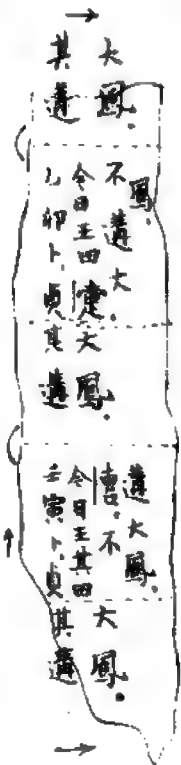 其遘
大鳳.
乙卯卜,貞
今日王田疐
不遘大
鳳.
其遘
大鳳.
壬寅卜,貞
今日王其田
曺,不
遘大鳳.
其遘
大鳳.